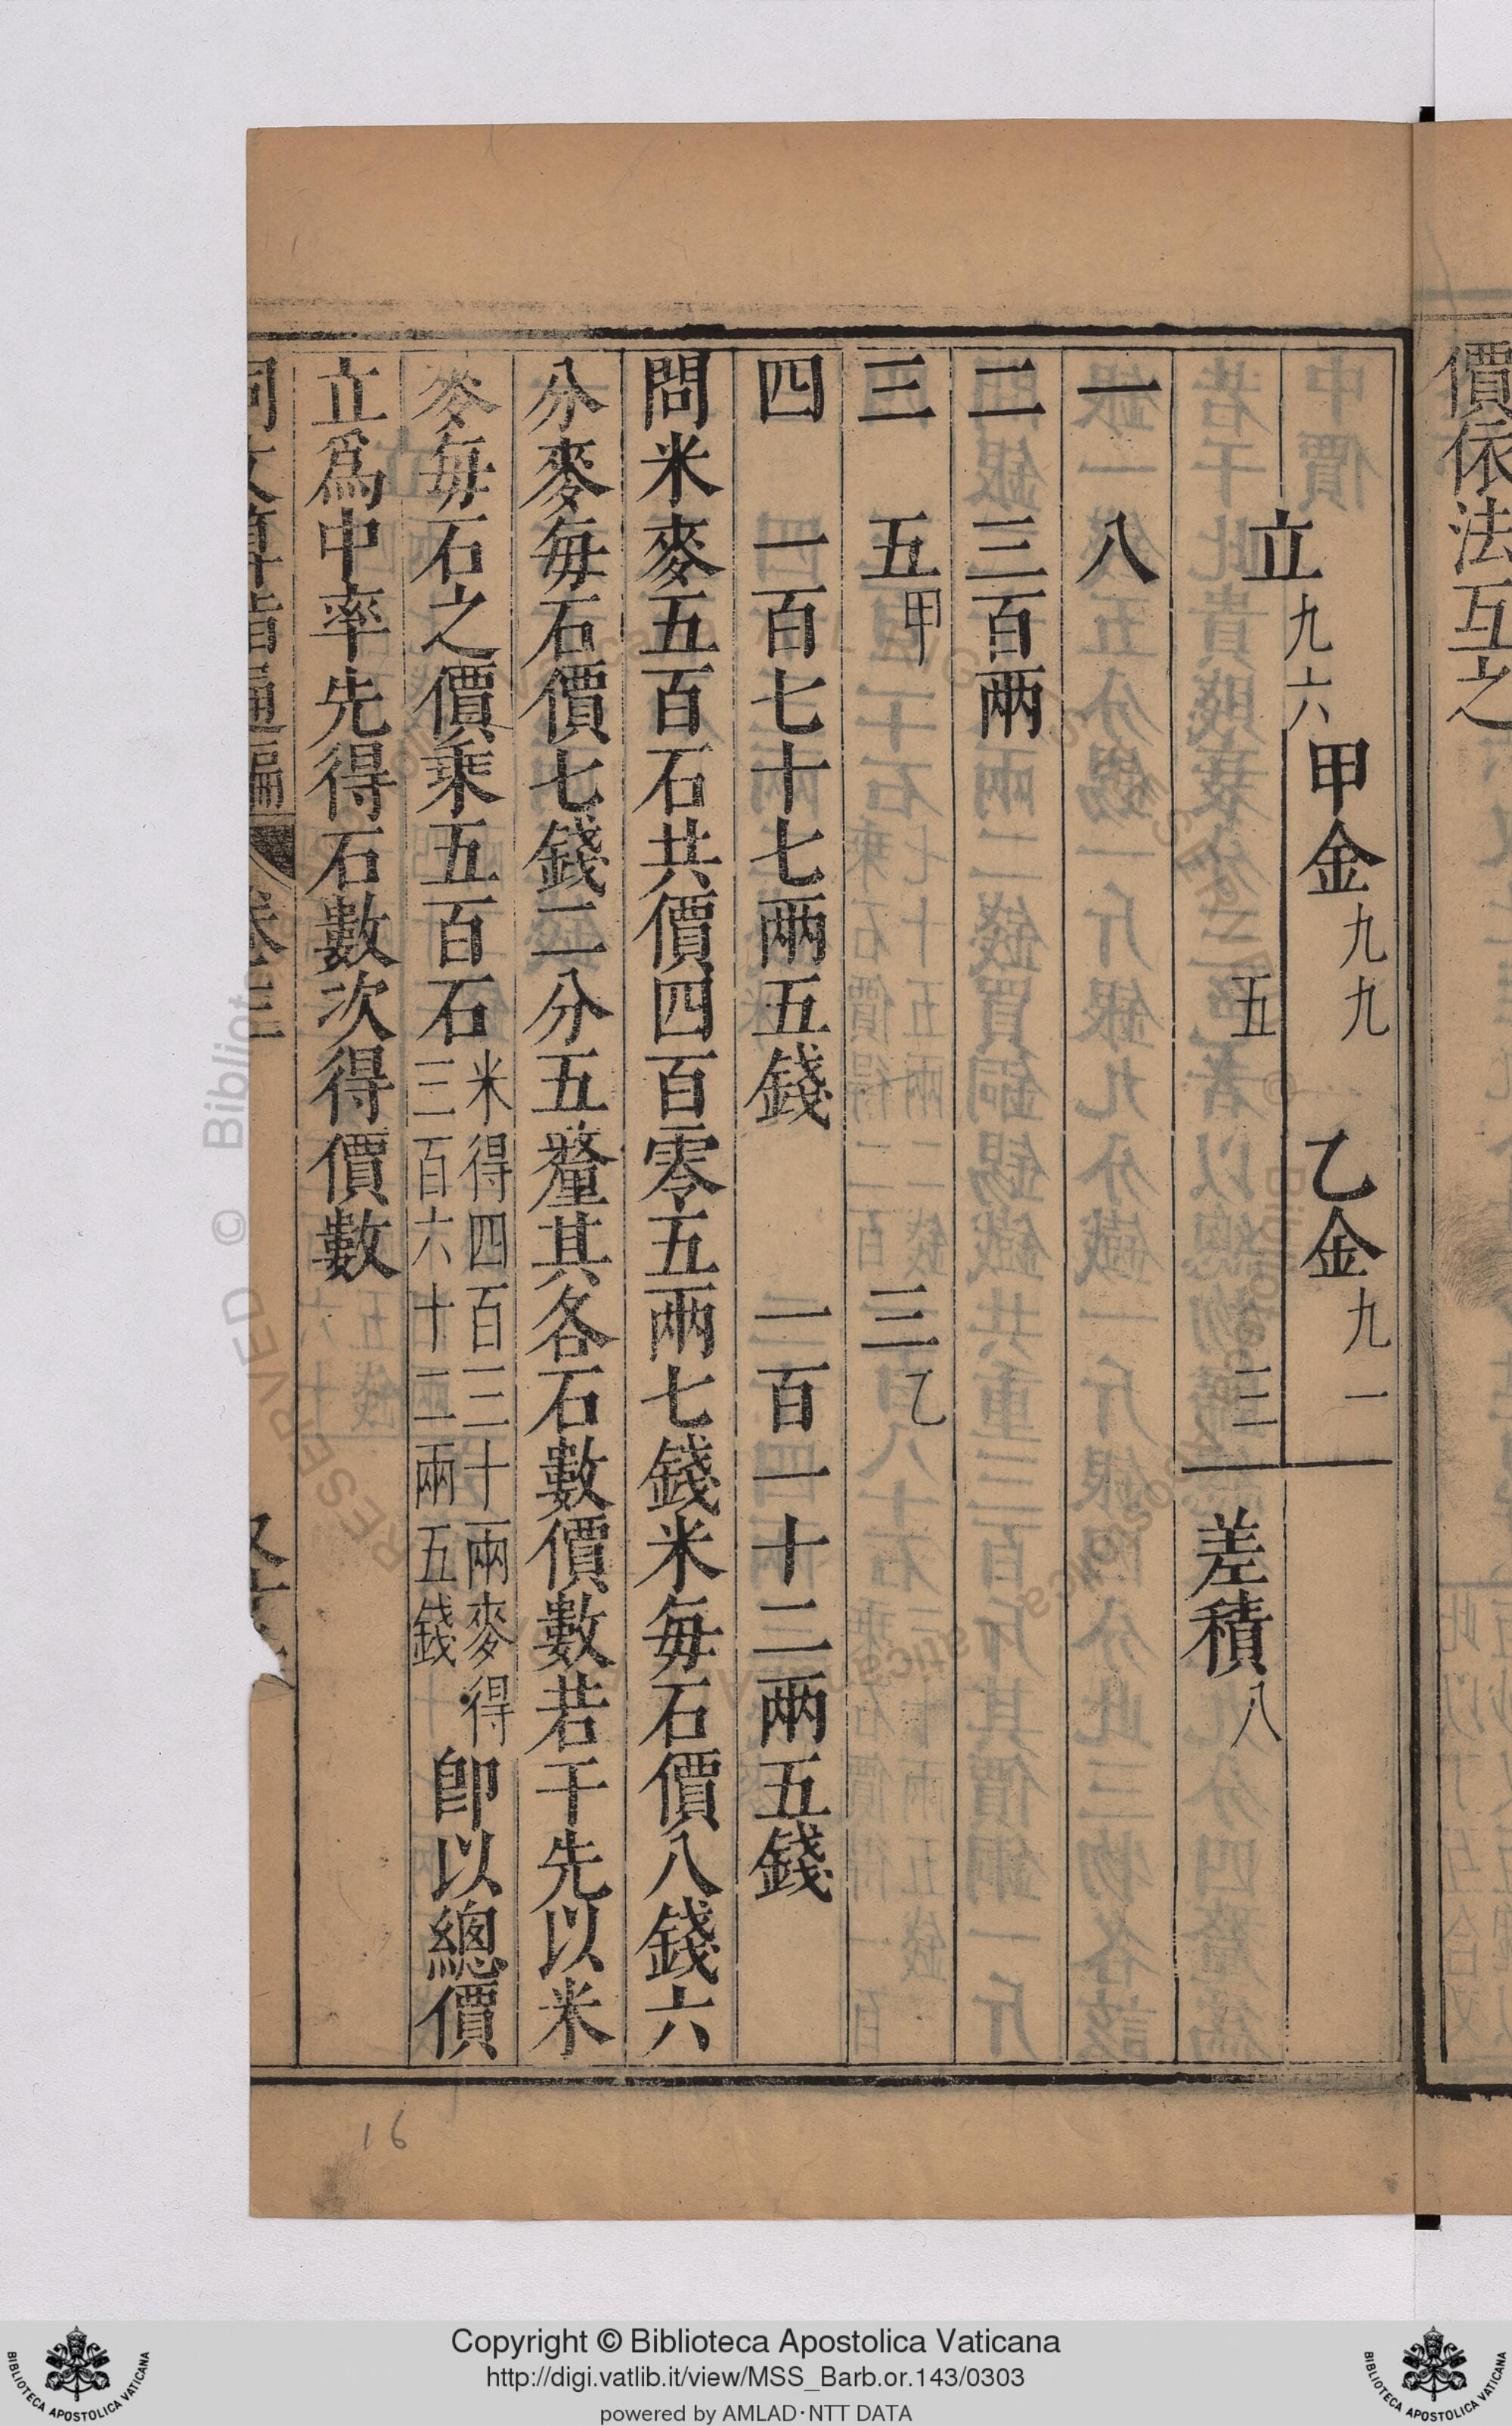 價依法互之
立九六
甲金九九
五
乙金九一
三
差積八
一 八
二 三百兩
三 五甲 三乙
四 一百七十七兩五錢 一百一十二兩五錢
問米麥五百石共價四百零五兩七錢米每石價八錢六
分麥每石價七錢二分五釐其各石數價數若干先以米
麥每石之價乘五百石米得四百三十兩麥得三百六十二兩五錢即以總價
立爲中率先得石數次得價數
同文算指通編 卷三
16
Copyright © Biblioteca Apostolica Vaticana
http://digi.vatlib.it/view/MSS_Barb.or.143/0303
powered by AMLAD·NTT DATA
BIBLIOTECA APOSTOLICA VATICANA
BIBLIOTECA APOSTOLICA VATICANA